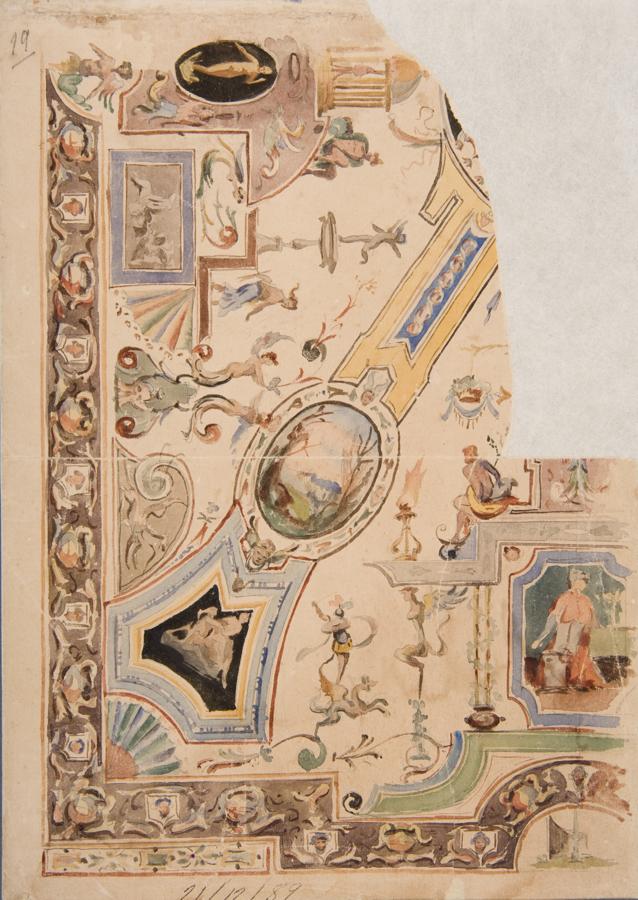 29
21/12/89